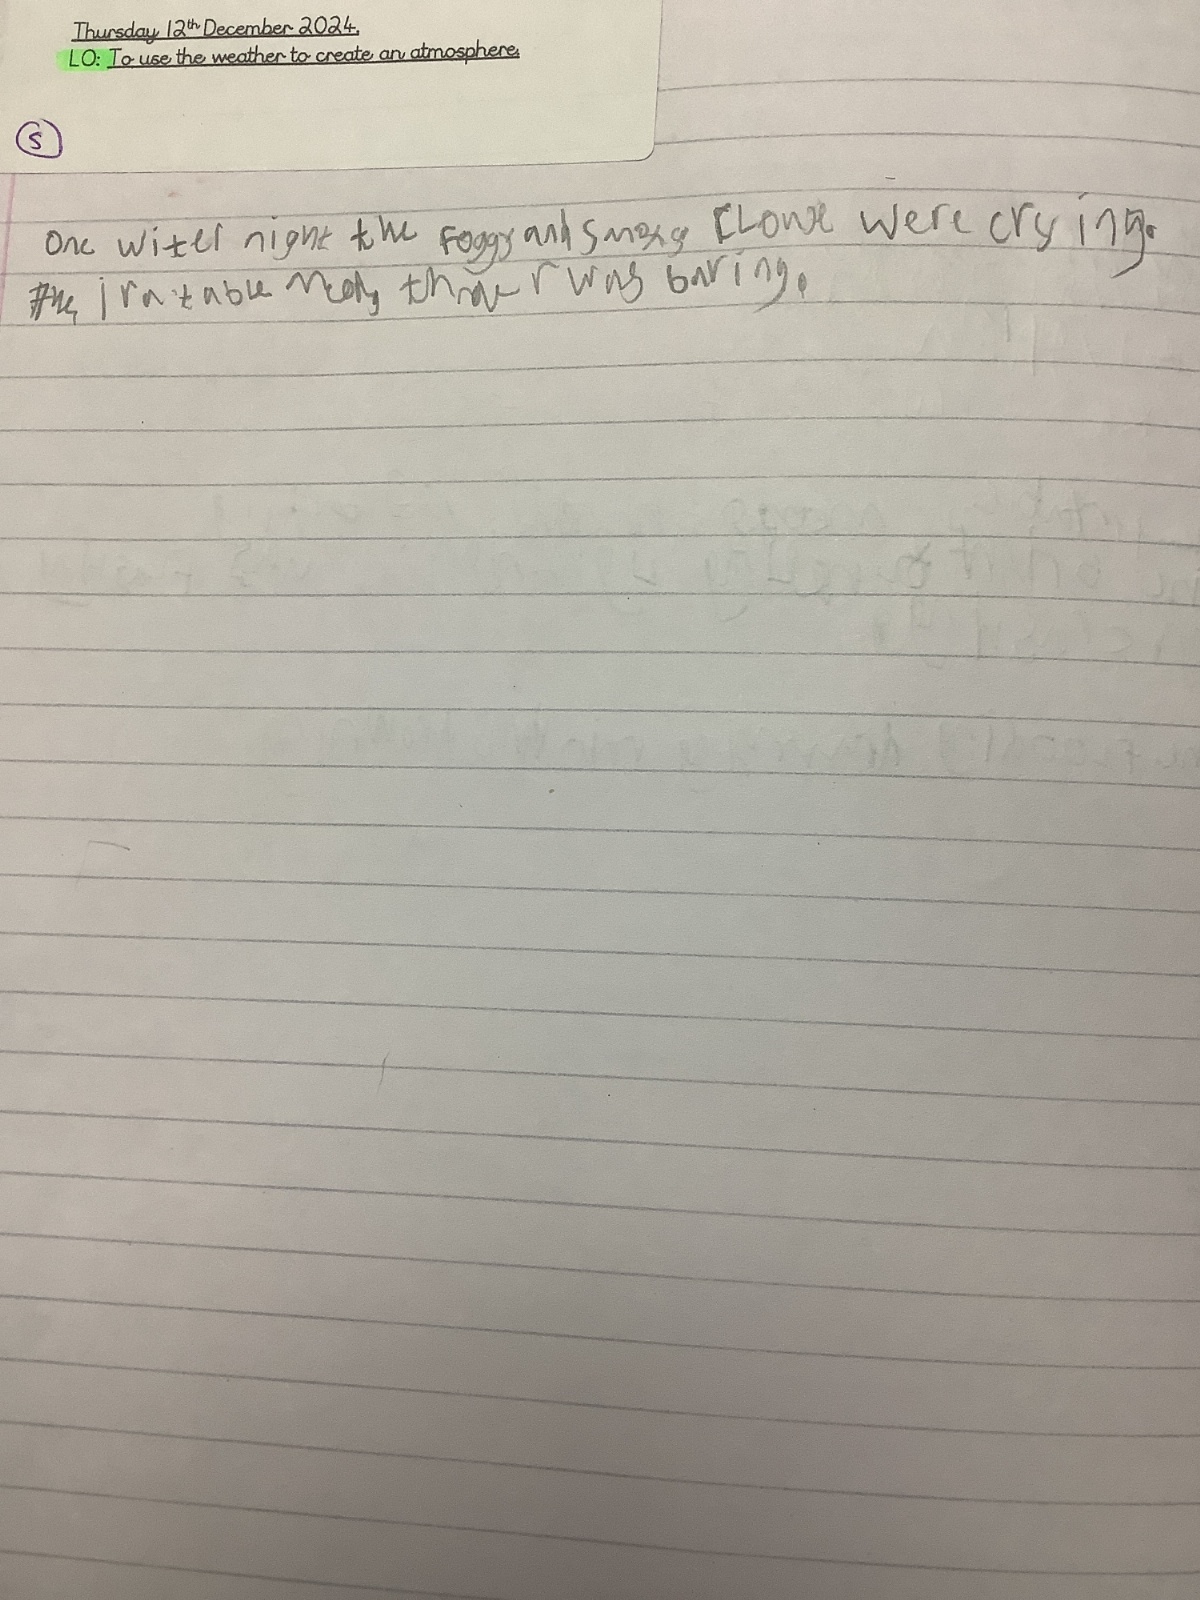 Thursday 12th December 2024.
LO: To use the weather to create an atmosphere.
S
One witer night the Foggy and Smoky were crying.
the iratable was baring.